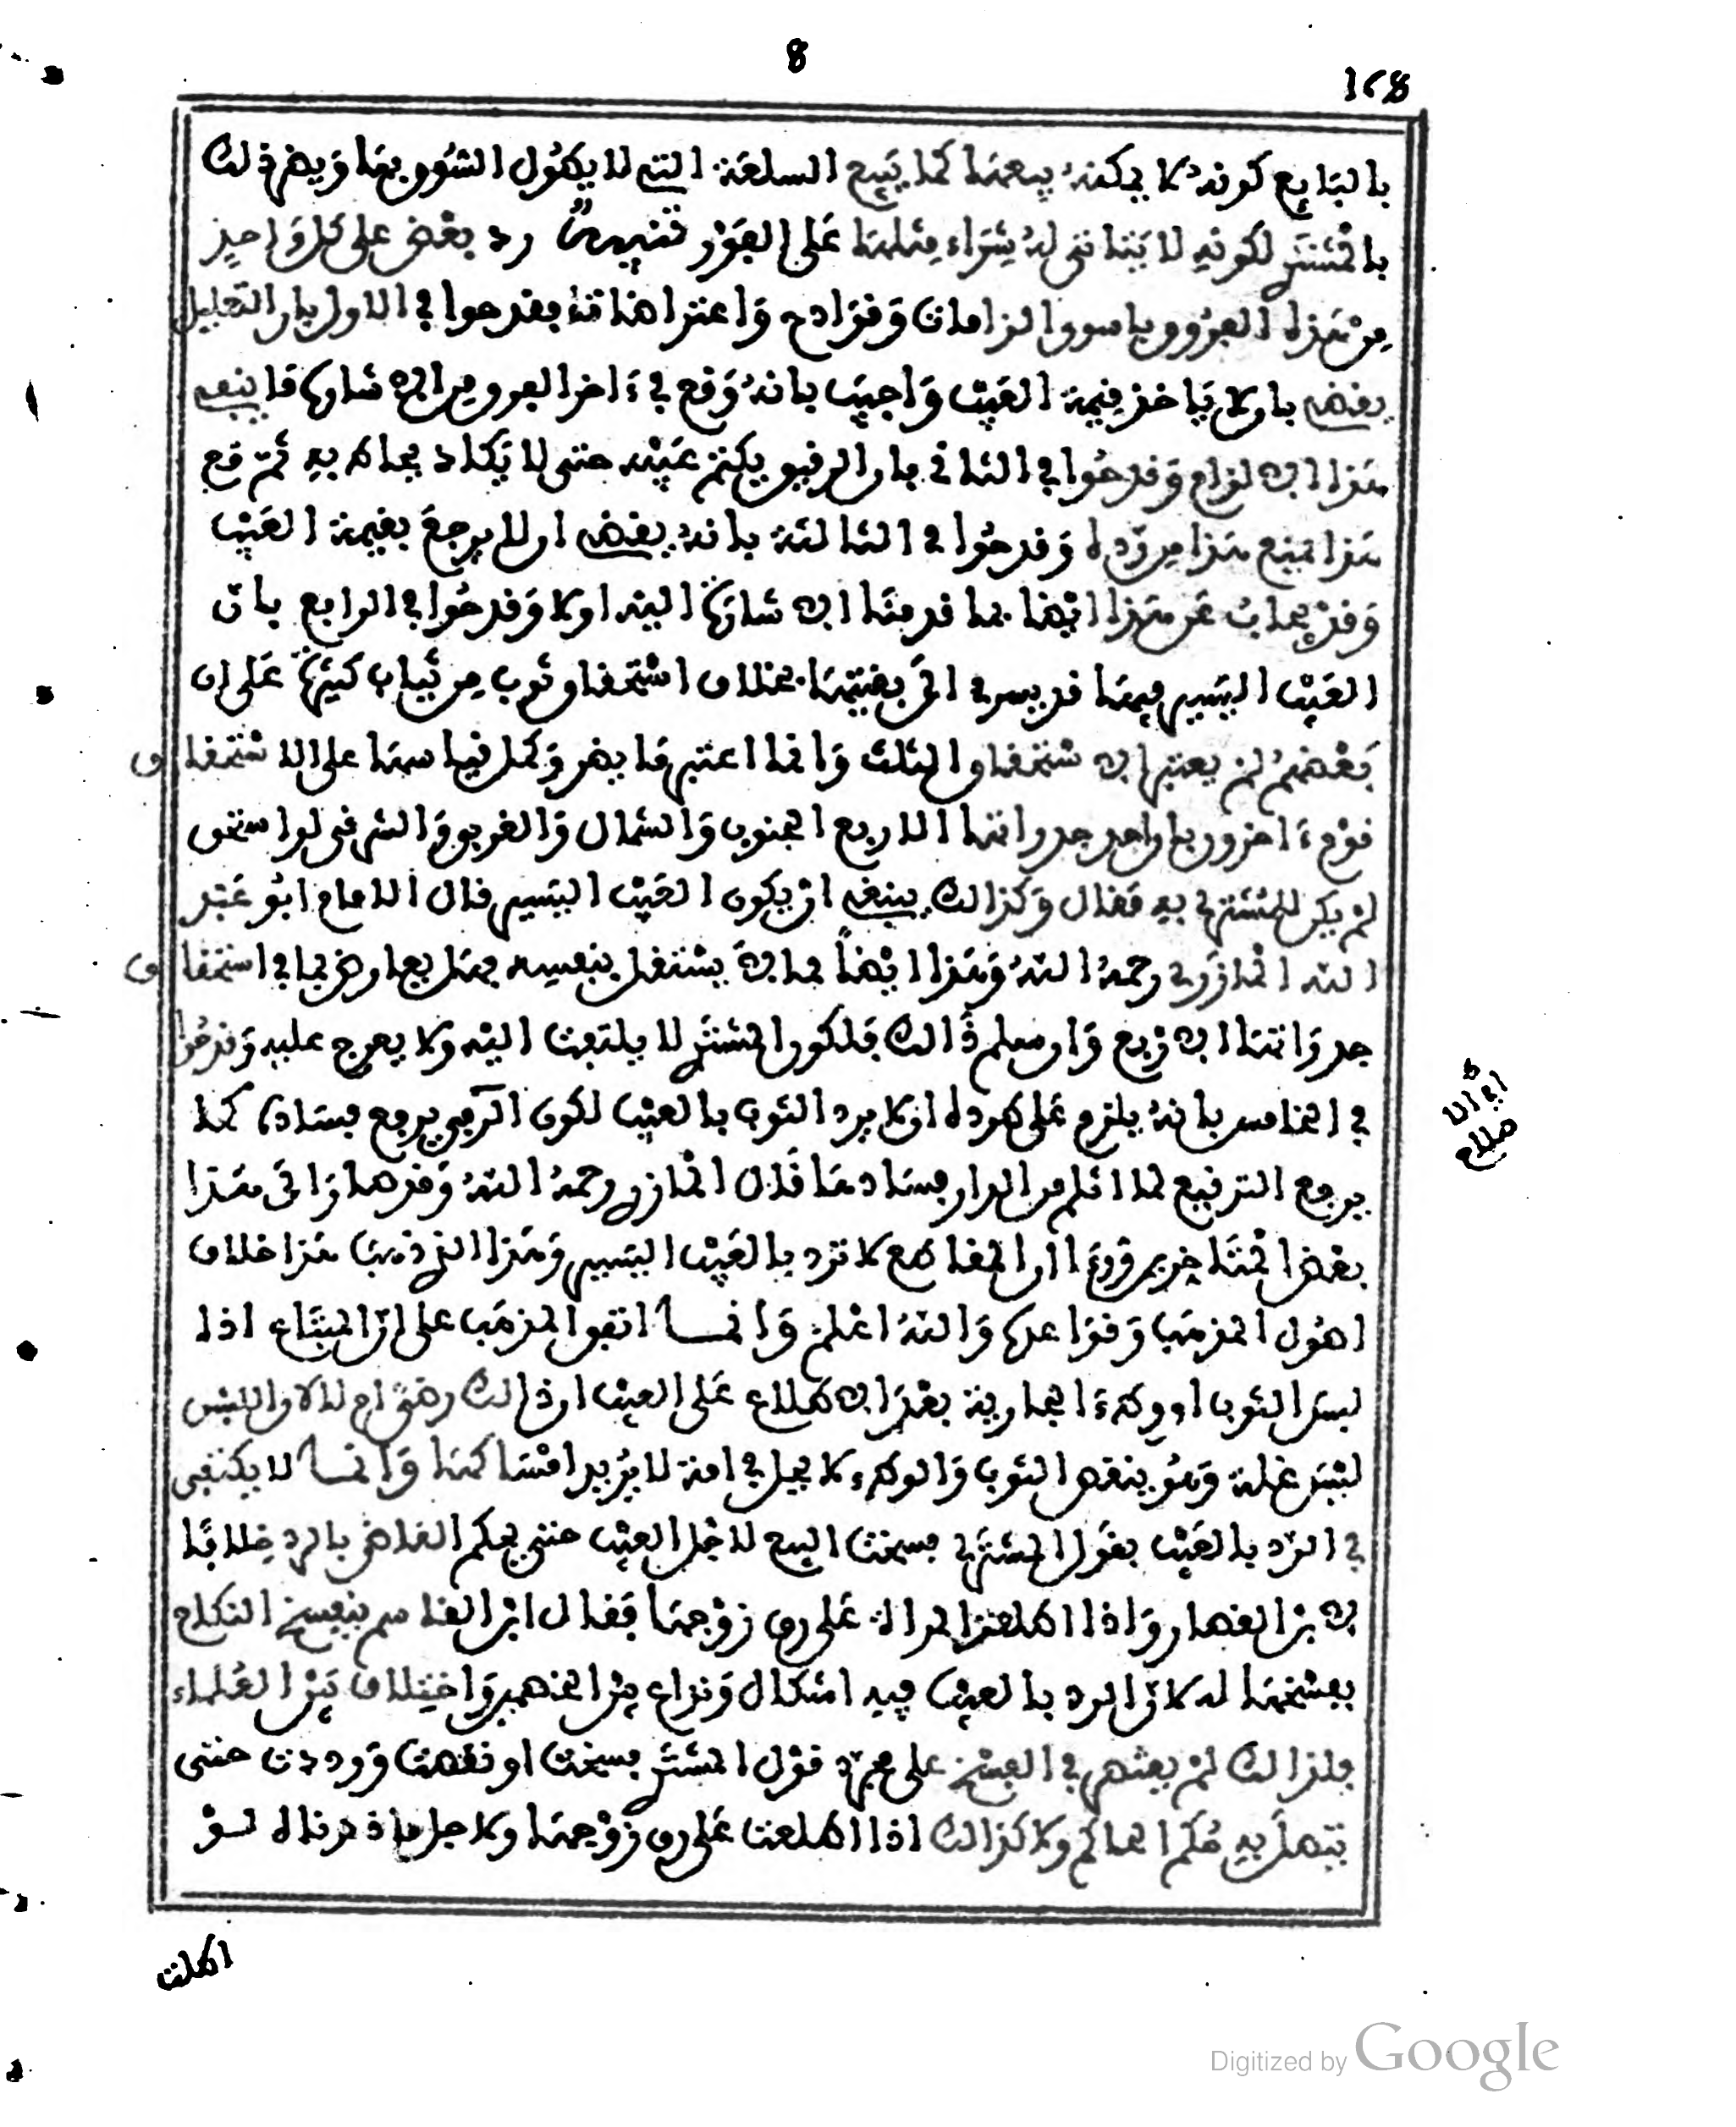 8
168
بالبايع كونه لا يمكنه بيعها كما يبيع السلعة التي لا يطول الشوق بها ويضر ذلك
بالمشتر لكونه لا يتاتى له شراء مثلها على الفور تنبيه رد بعض على كل واحد
من هذه الفروق باسوو الزامات وقوادح واعتراضات فقدحوا في الاول بان التعليل
يقتضي بان لا ياخذ قيمة العيب واجيب بانه وقع في ءاخر الفرق من الاشارة ما ينفي
هذا الالزام وقدحوا في الثاني بان الرقيق يكتم عيبه حتى لا يكاد يحاط به ثم مع
هذا لم يمنع هذا من رده وقدحوا في الثالثة بانه يقتضي ان لا يرجع بقيمة العيب
وقد يجاب عن هذا ايضا بما قدمنا الاشارة اليه اولا وقدحوا في الرابع بان
العيب اليسير فيها قد يسري الى بقيتها بخلاف استحقاق ثوب من ثياب كثيرة على ان
بعضهم لم يعتبر الاستحقاق الثلث وانما اعتبر ما يضر وكل قياسها على الاستحقاق
قوم ءاخرون بان احد جدرانها الاربع الجنوب والشمال والغرب والشرق لو استحق
لم يكن للمشتري به مقال وكذالك ينبغي ان يكون العيب اليسير قال الامام ابو عبد
الله المازري رحمه الله وهذا ايضا مما لا يستقل بنفسه فهل يعارض بما في استحقاق
جدرانها الاربع وان سلم ذالك فلكون المشتر لا يلتفت اليه ولا يعرج عليه وقدحوا
في الخامس بانه يلزم على طرده ان لا يرد الثوب بالعيب لكون الرفو يرفع فساده كما
يرفع الترقيع لما انثلم من الدار فسادها قال المازري رحمه الله وقد صار الى هذا
بعض المتاخرين ورءا ان المقاطع لا ترد بالعيب اليسير وهذا الذي ذهب هذا خلاف
اصول المذهب وقواعده والله اعلم وانما اتفق المذهب على ان المبتاع اذا
لبس الثوب او وطء الجارية بعد الاطلاع على العيب ان ذالك رضى ام لا لان اللبس
ليس غلة وهو ينقص الثوب والوطء لا يحل في امة لا يريد امساكها وانما لا يكتفى
في الرد بالعيب بقول المشتري فسخت البيع لاجل العيب حتى يحكم القاضي بالرد خلافا
لابن القصار واذا اطلعت المراة على رق زوجها فقال ابن القاسم ينفسخ النكاح
بفسخها له لان الرد بالعيب فيه اشكال ونزاع بين الخصمين واختلاف بين العلماء
فلذالك لم يقتصر في الفسخ على مجرد قول المشتر فسخت او نقضت ورددت حتى
يتصل به حكم الحاكم ولا كذالك اذا اطلعت على رق زوجها ولاجل ما ذكرناه لو
اطلعت